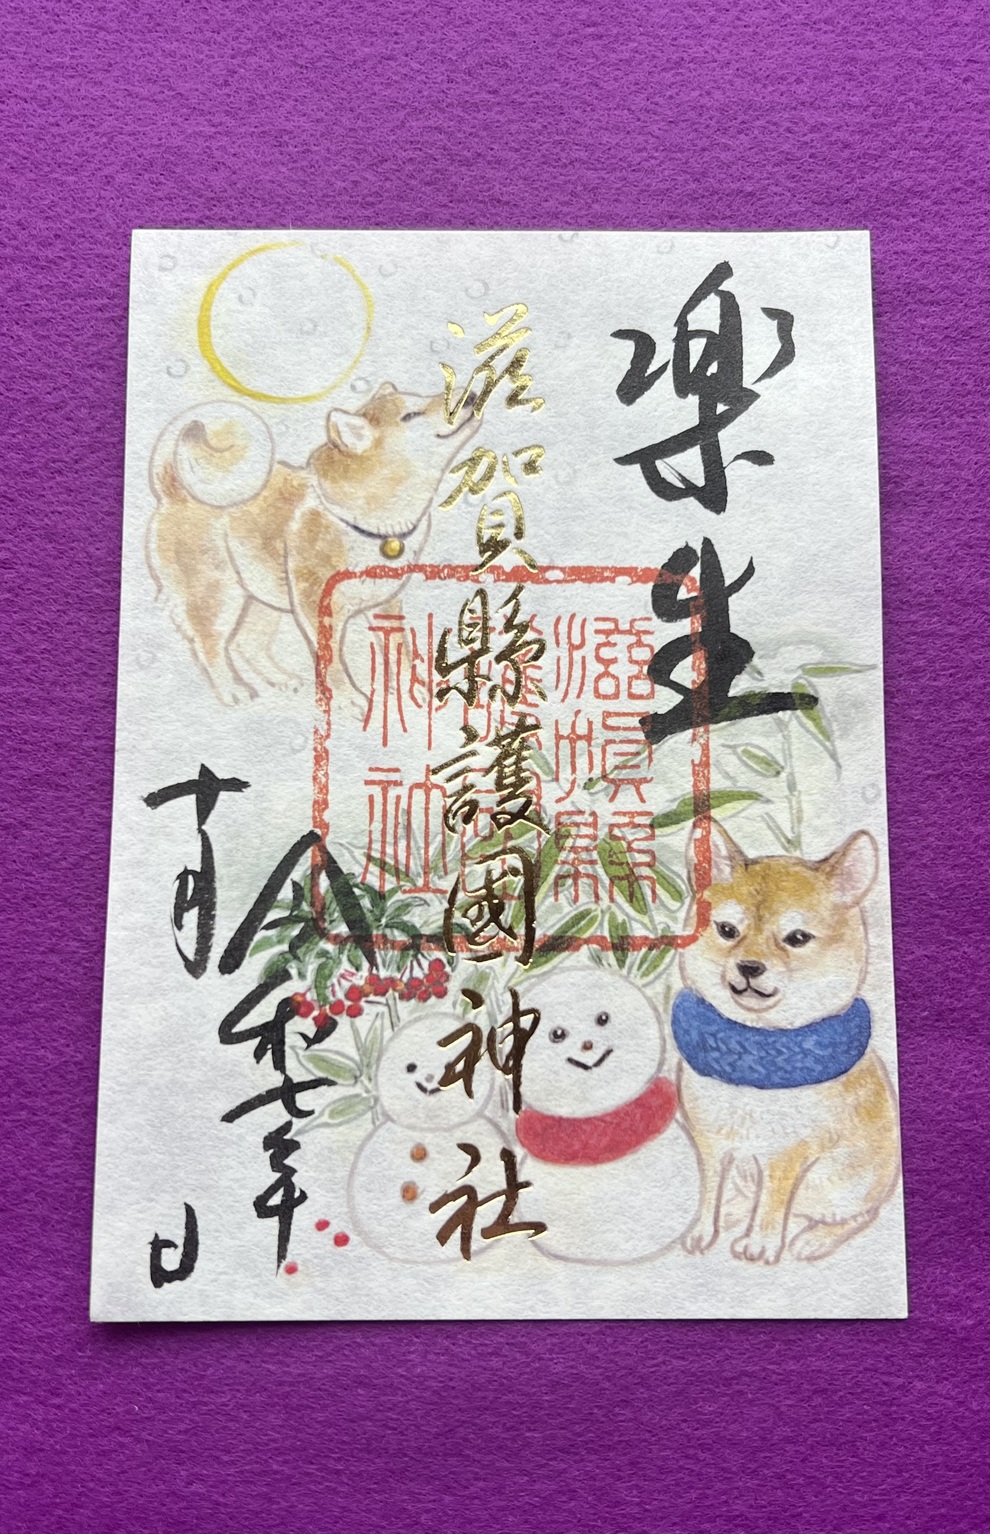 楽生
滋賀縣護國神社
滋賀縣
護國
神社
令和七年
十月 日